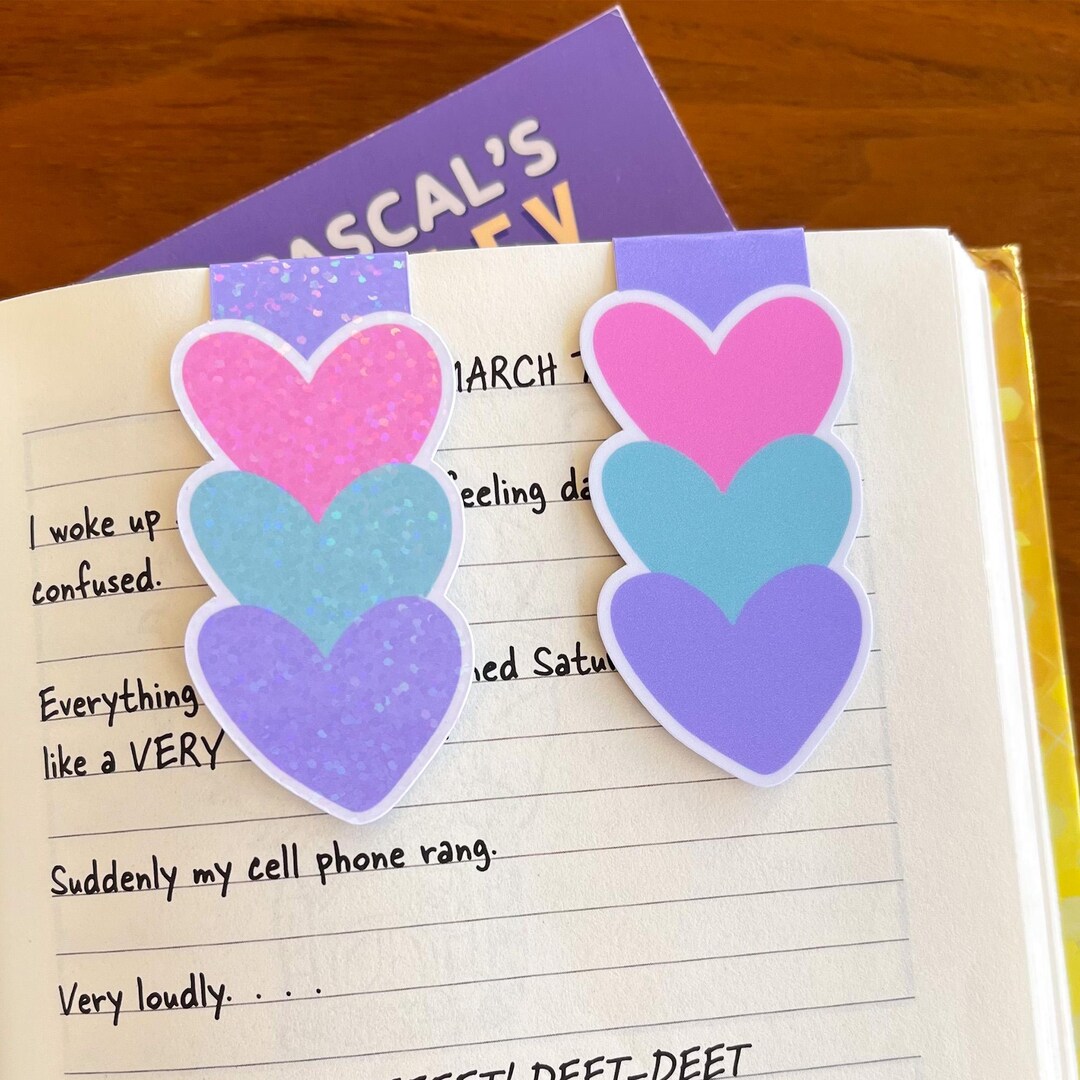 PASCAL'S
MARCH
I woke up feeling
confused.
Everything
like a VERY
Suddenly my cell phone rang.
Very loudly. . . .
DEET-DEET